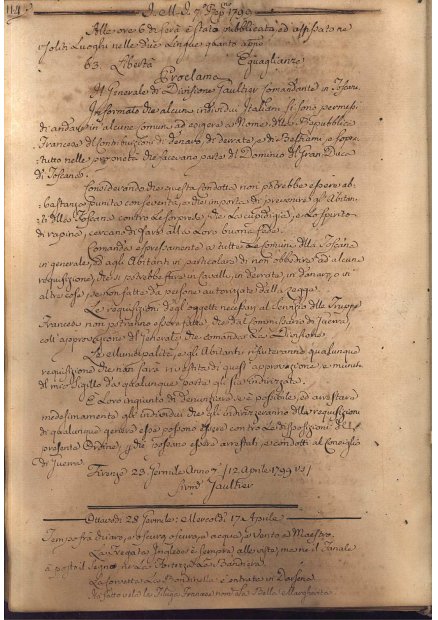 114
Alle ore 6 di sera è stato pubblicato, ed affissato ne
soliti Luoghi nelle due Lingue quanto appe
63. Libertà Eguaglianza
Proclama
Il Generale di Divisione Gaultier Comandante in Toscana
Informato che alcuni individui Italiani si sono permessi
di andare in alcune comuni ad esigere a Nome della Repubblica
Francese di Contribuzioni di denaro, di derrate, e di bestiami, e sopra
tutto nelle che facevano parte del Dominio del Gran Duca
di Toscana.
Considerando che questa condotta non potrebbe essere ab-
bastanza punita con severità, e che importa di prevenire gli Abitan-
ti della Toscana contro le sorprese, che la cupidigia, e lo spirito
di rapina, cercano di fare alla Loro buona fede.
Comanda espressamente a tutte le Comuni della Toscana
in generale, ed agli Abitanti in particolare di non obbedire ad alcuna
requisizione, che si potrebbe fare in Cavalli, in derrate, in danaro, o in
altre cose, se non fatte da persone autorizzate dalla Legge.
Le requisizioni degli oggetti necessari al servizio delle Truppe
Francesi non potranno essere fatte, che dal Commissario di Guerra,
coll'approvazione del Generale, che comanda La Divisione.
Le Municipalità, e gli Abitanti rifiuteranno qualunque
requisizione che non sarà rivestita di quest'approvazione, e munita
del mio sigillo da qualunque parte gli sia indirizzata.
È Loro ingiunto di denunziare, e se è possibile, ed arrestare
medesimamente gli individui che gli indirizzeranno delle requisizioni
di qualunque genere esse possono essere contro le disposizioni del
presente Ordine, che possano essere arrestati, e condotti al Consiglio
di Guerra.
Firenze 23 Germile Anno 7 [12 Aprile 1799 vs]
firm° Gaultier
Ottavodì 28 Germile: Mercoldì 17 Aprile
Tempo fra chiaro, e oscuro, oscuro, e acqua, e Vento a Maestro.
La Fregata Inglese è sempre alla vista, ma ne il Fanale
à posto il segno, ne La Fortezza La Bandiera.
La Corvetta La Bondinella è entrata in Darsena
Ha fatto vela la Filuga Francese nominata Bella Margherita.